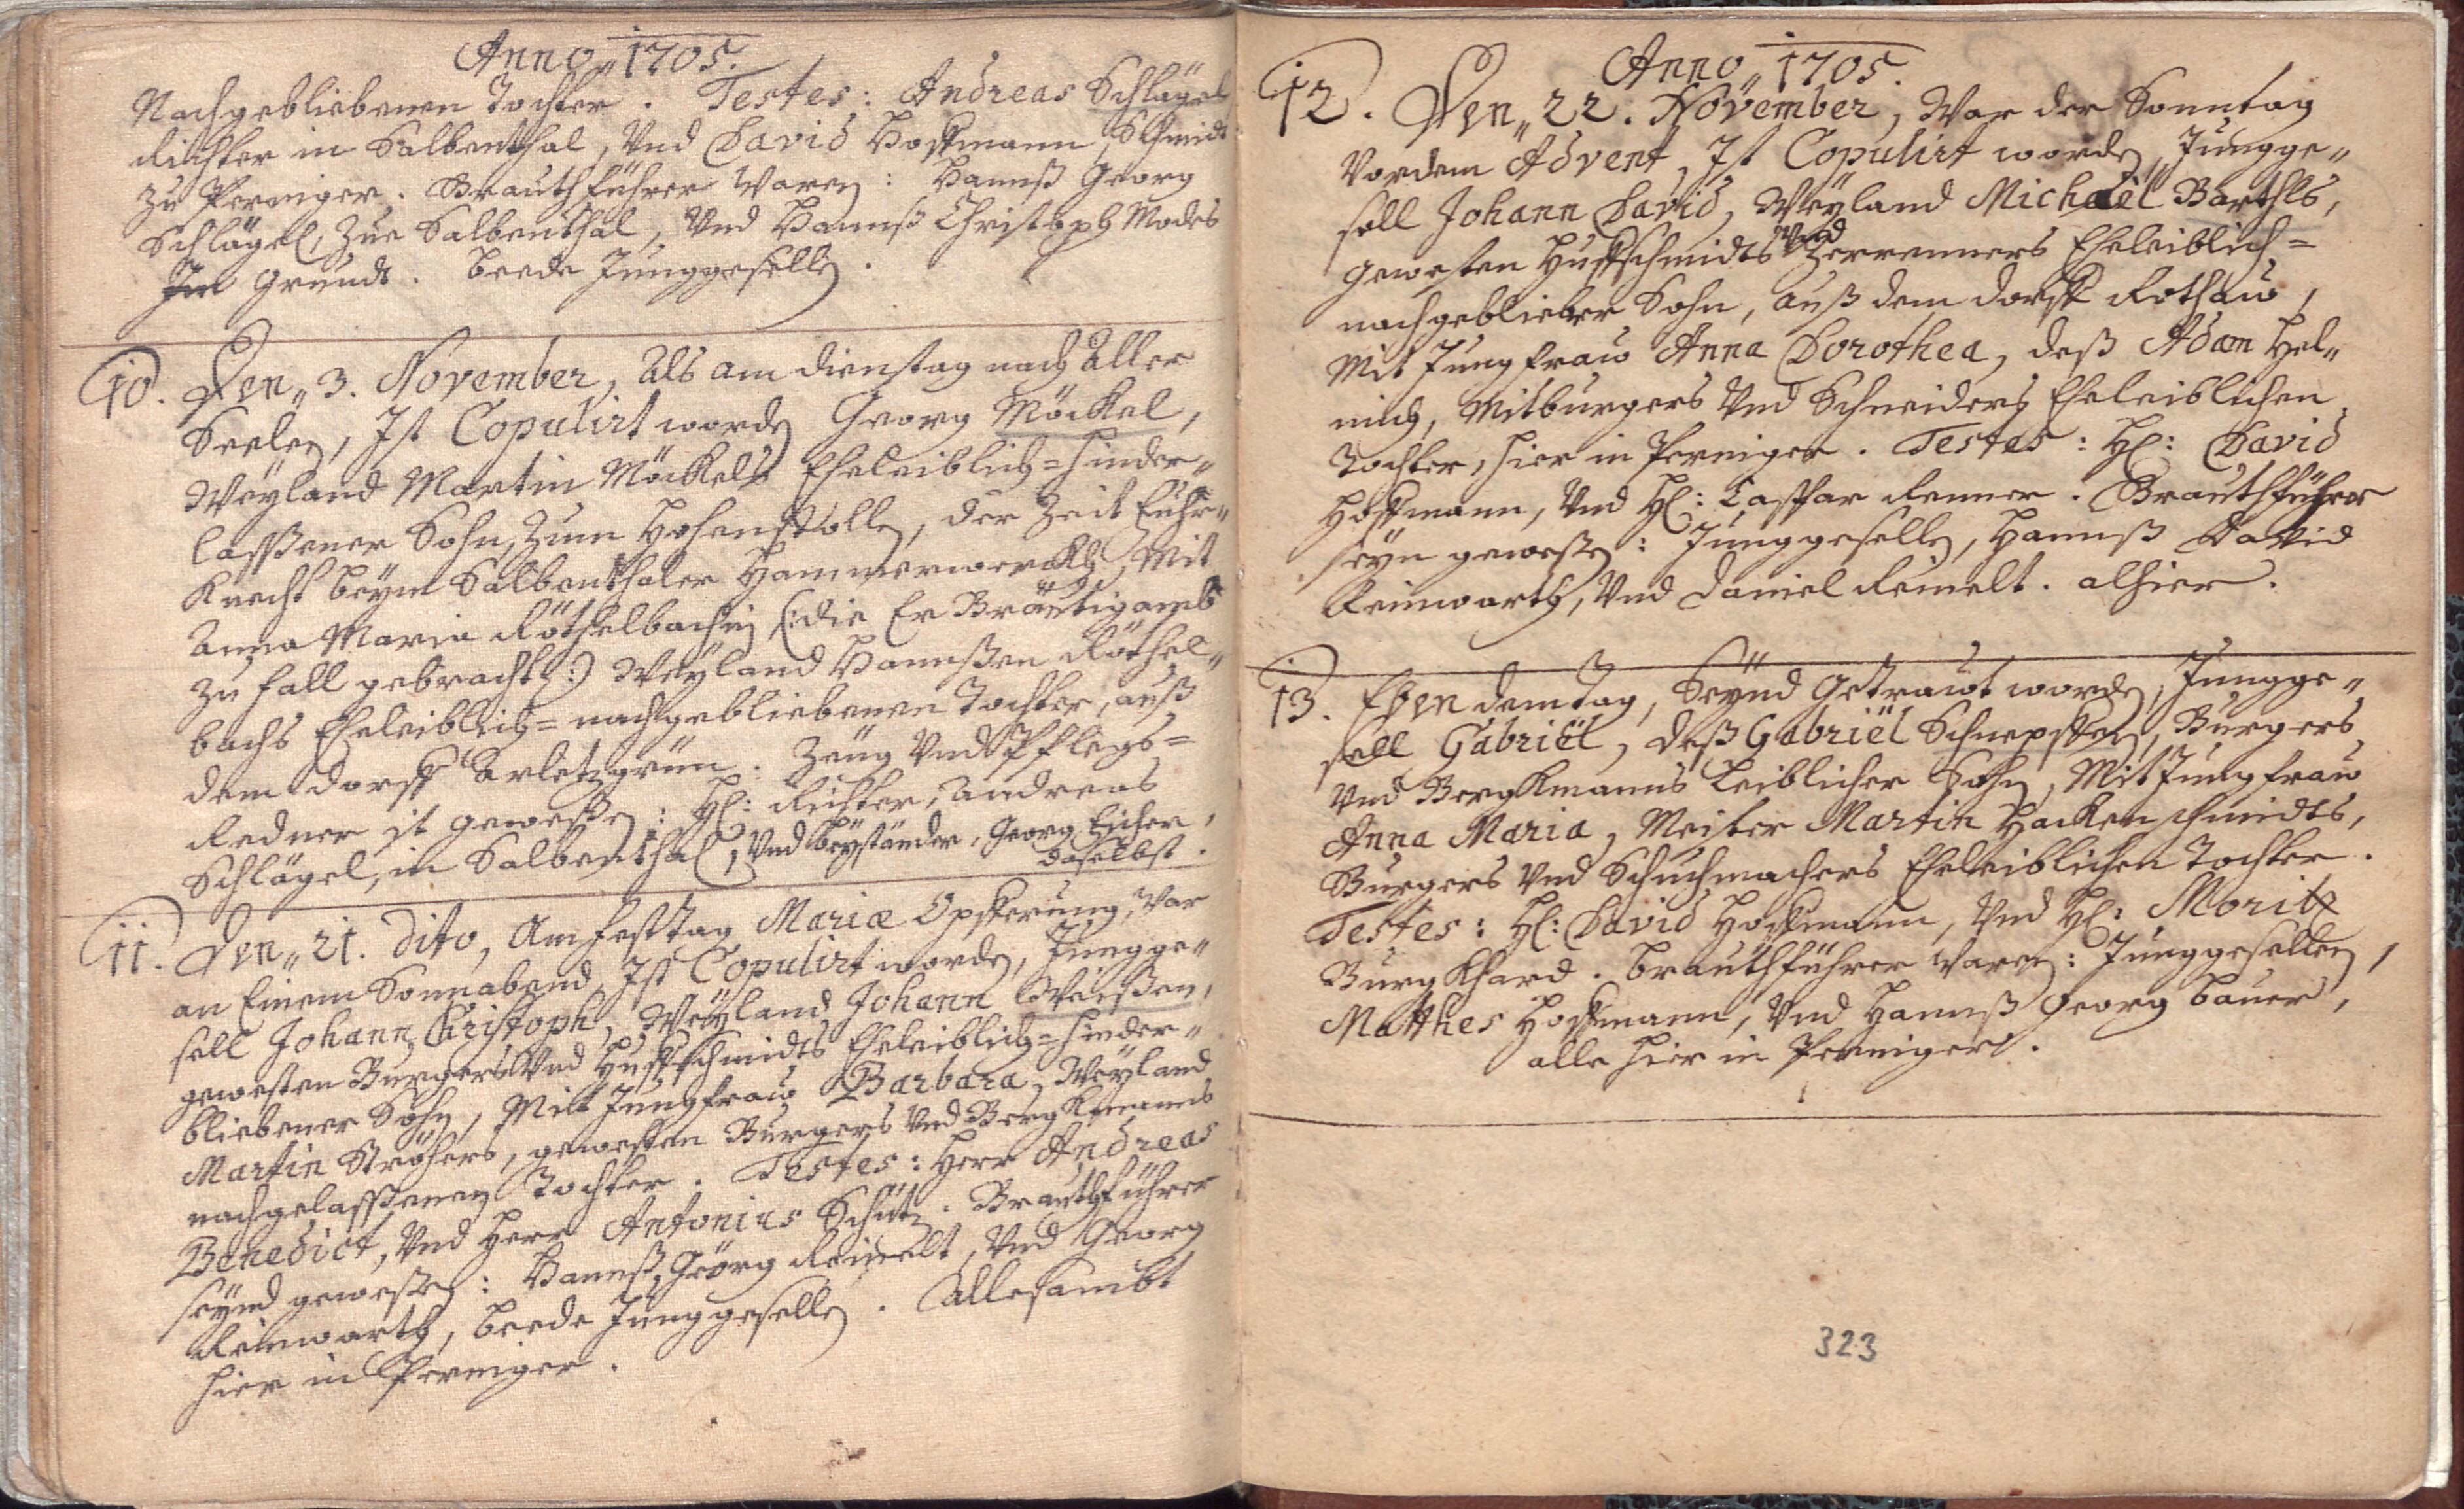 Anno 1705.
Nachgebliebenen Tochter. Testes: Andreas Schlägel
Richter in Salbenthal, Vnd David Hoffmann, Schmidt
zu Perninger. Brauthführer waren: Hannß Georg
Schlägel, Zue Salbenthal, Vnd Hannß Christoph Modes
Im Grundt. beede Junggeselln.
10. Den„ 3. November, Als am Dienstag nach Aller
Seelen, Ist Copulirt worden Georg Möckel,
Weÿland Martin Möckels Eheleiblich=hinder„
lassener Sohn, Zum Hohenstolln, der Zeit Fuhr„
Knecht beÿm Salbenthaler Hammerwerckh, Mit
Anna Maria Röthelbachin (:die Er Bräutigamb
zu fall gebracht:) Weÿland Hannßen Röthel„
bachs Eheleiblich=nachgebliebenen Tochter, auß
dem Dorff Arletzgrün. Zeug Vnd Pflegs=
Redner ist gewesen: H: Richter, Andreas
Schlägel, in Salbenthal, Vnd beÿständer, Georg Eicher,
daselbst.
11. Den„ 21. Dito, Am Festtag Mariæ Opfferung, war
an Einem Sonnabend, Ist Copulirt worden, Jungge„
sell Johann Christoph, Weÿland Johann Weißen,
gewesten Burgers Vnd Huffschmidts Eheleiblich=hinder„
bliebener Sohn, Mit Jungfraw Barbara, Weÿland
Martin Ströhers, gewesten Burgers Vnd Bergkmanns
nachgelassenen Tochter. Testes: Herr Andreas
Benedict, Vnd Herr Antonius Schütz. Brauthführer
seÿnd gewesen: Hannß Georg Reinelt, Vnd Georg
Reinwarth, beede Junggeselln. Allesambt
hier in Perninger.
Anno 1705.
12. Den„ 22. November, War der Sonntag
Vor dem Advent, Ist Copulirt worden, Jungge„
sell Johann David, Weÿland Michaël Barthls,
gewesten Huffschmidts Vnd Zerrenners Eheleiblich=
nachgeblieber Sohn, auß dem Dorff Rothaw,
Mit Jungfraw Anna Dorothea, deß Adam Hel„
mich, Mitburgers Vnd Schneiders Eheleiblichen
Tochter, hier in Perninger. Testes: H: David
Hoffmann, Vnd H: Casspar Renner. Brauthführer
seÿn gewesen: Junggeselln, Hannß David
Reinwarth, Vnd Daniel Reinelt. alhier.
13. Eben dem tag, Seÿnd Getrawt worden, Jungge„
sell Gabriël, deß Gabriël Schnepffen, Burgers
Vnd Bergkmanns Leiblicher Sohn, Mit Jungfraw
Anna Maria, Meister Martin Hackenschmidts,
Burgers Vnd Schuchmachers Eheleiblichen Tochter.
Testes: H: David Hoffmann, Vnd H: Moritz
Burgkhard. brauthführer waren: Junggesellen,
Matthes Hoffmann, Vnd Hannß Georg Bauer,
alle hier in Perninger.
323